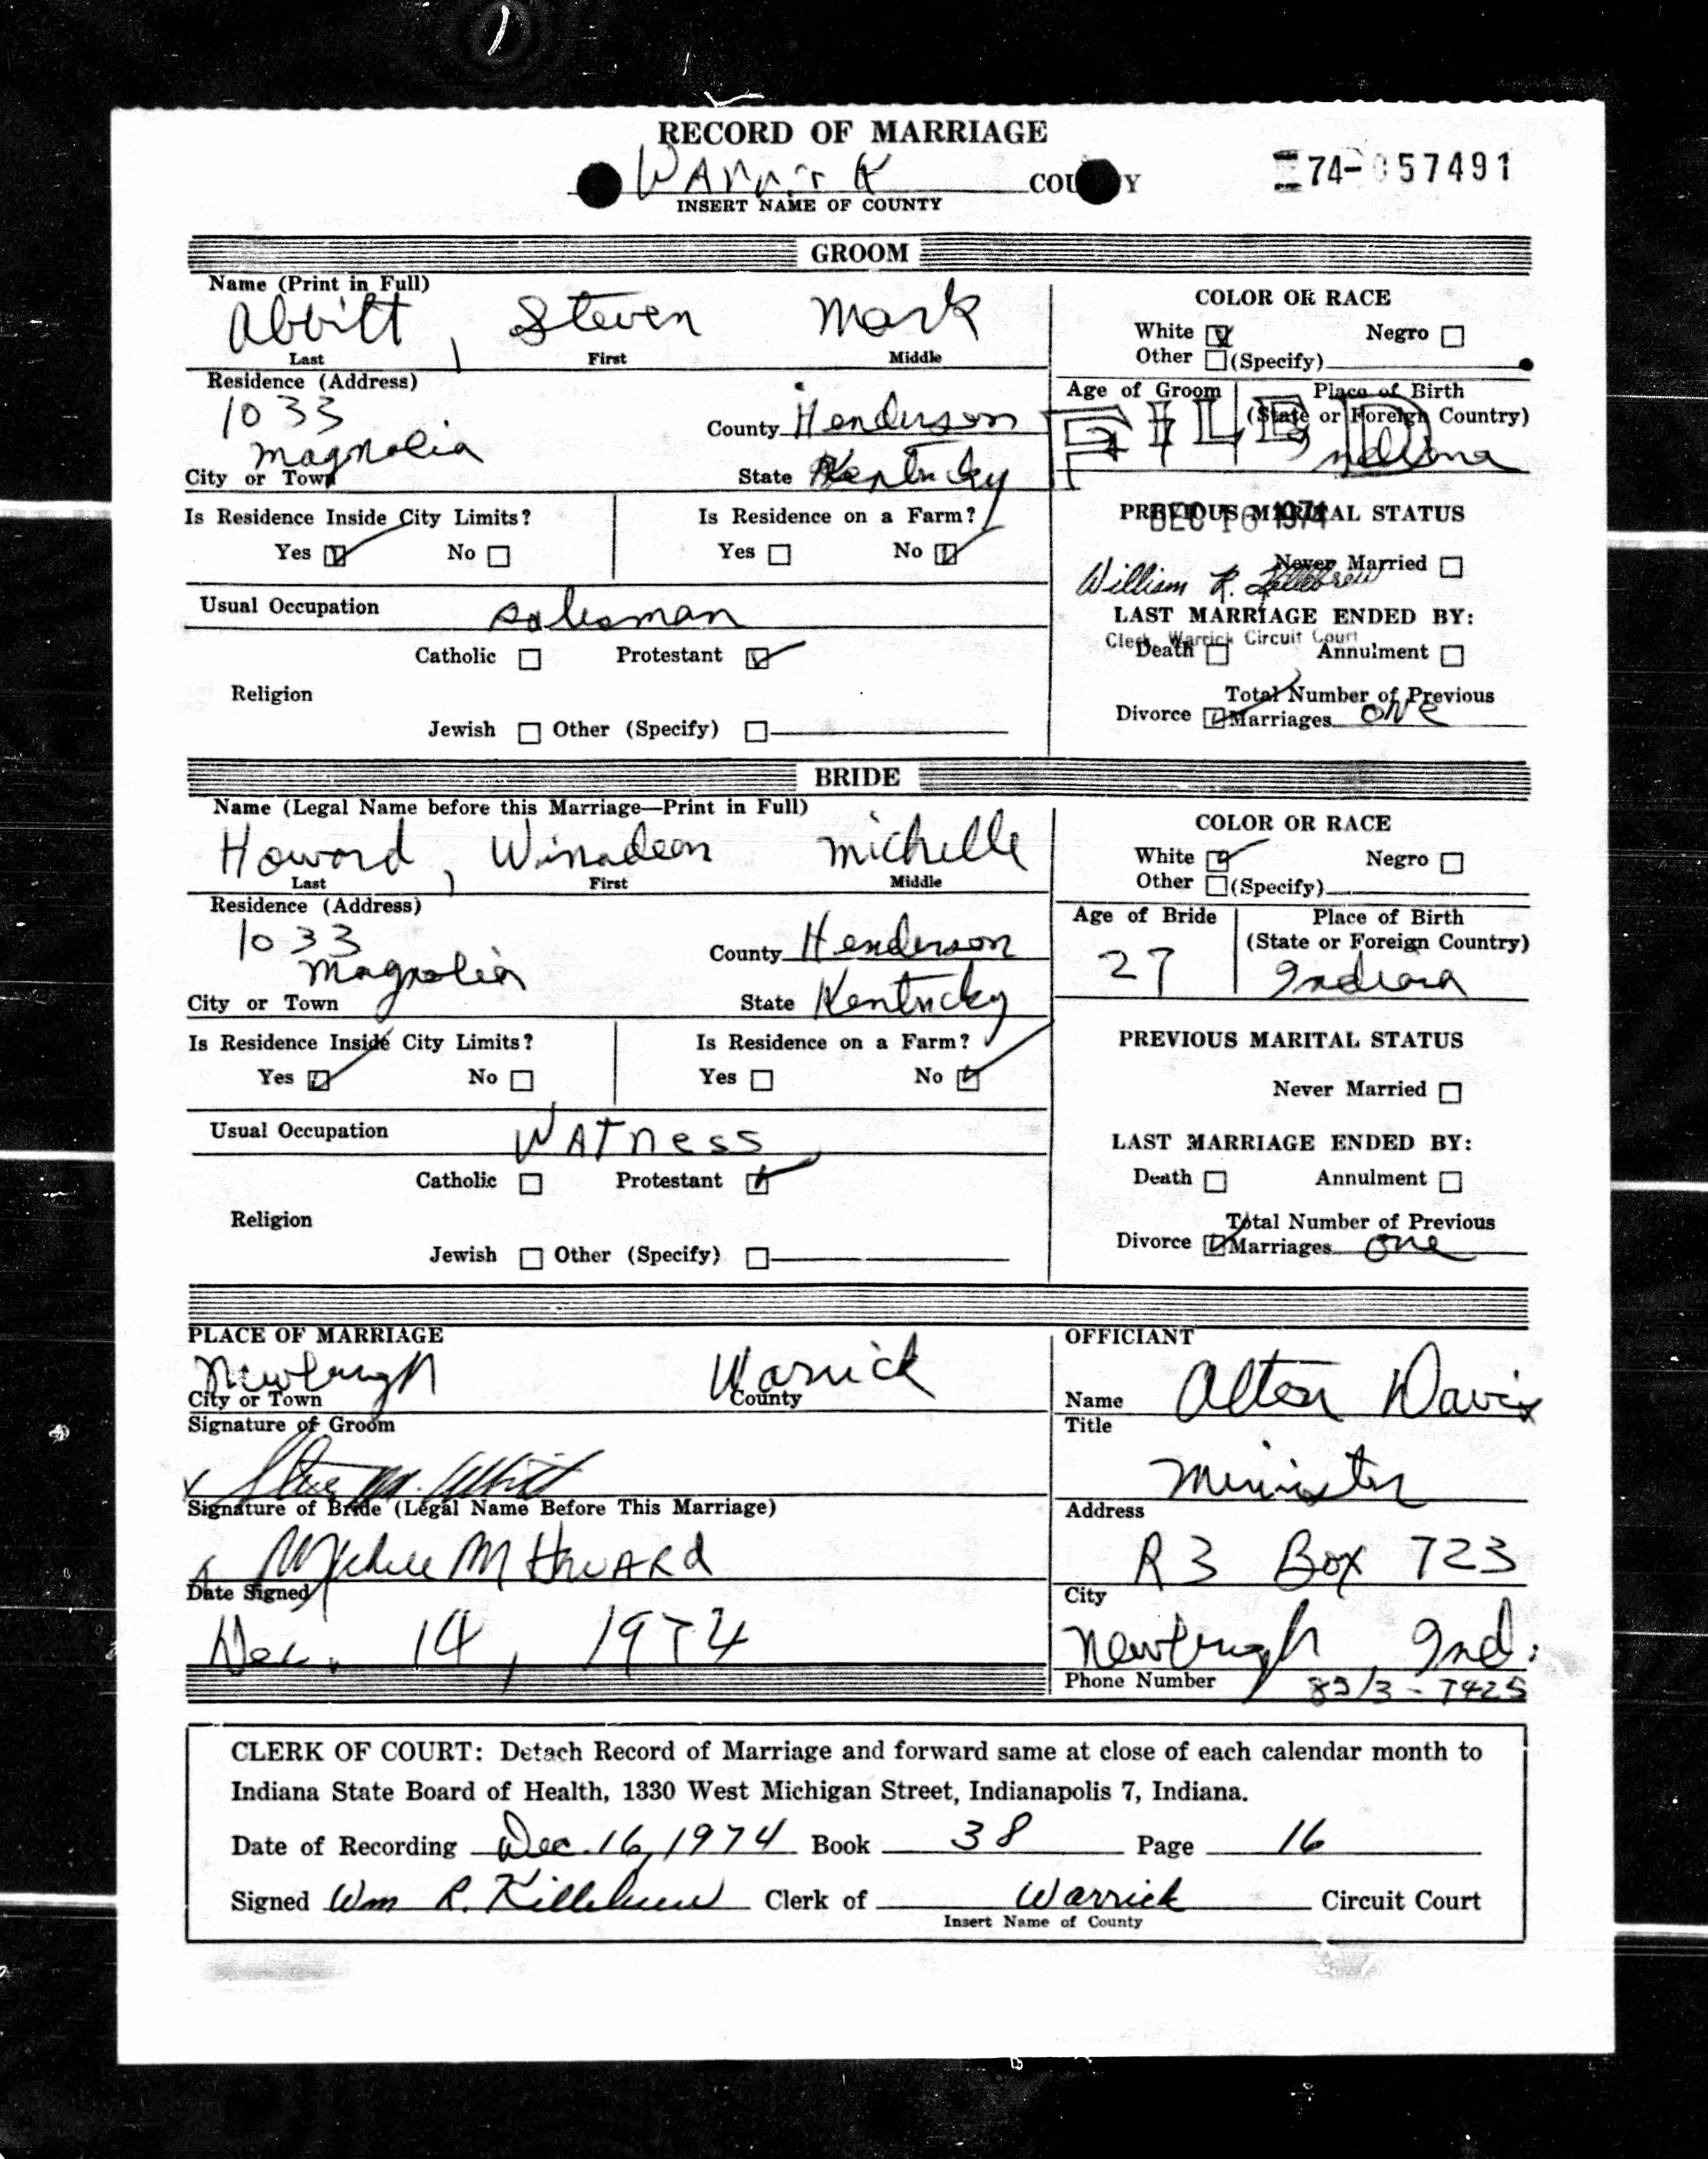 RECORD OF MARRIAGE
WArrick COUNTY
INSERT NAME OF COUNTY
74-057491
GROOM
Name (Print in Full)
Abbitt, Steven Mark
Last First Middle
COLOR OR RACE
White ☑ Negro ☐
Other ☐ (Specify)
Residence (Address)
1033
Magnolia
County Henderson
City or Town State Kentucky
Age of Groom Place of Birth
(State or Foreign Country)
Indiana
FILED
DEC 16 1974
Is Residence Inside City Limits? Is Residence on a Farm?
Yes ☑ No ☐ Yes ☐ No ☑
PREVIOUS MARITAL STATUS
Never Married ☐
William R.
LAST MARRIAGE ENDED BY:
Clerk Warrick Circuit Court
Death ☐ Annulment ☐
Usual Occupation salesman
Catholic ☐ Protestant ☑
Religion
Jewish ☐ Other (Specify) ☐
Total Number of Previous
Divorce ☑ Marriages ONE
BRIDE
Name (Legal Name before this Marriage—Print in Full)
Howard, Winadean Michelle
Last First Middle
COLOR OR RACE
White ☑ Negro ☐
Other ☐ (Specify)
Residence (Address)
1033
Magnolia
County Henderson
City or Town State Kentucky
Age of Bride Place of Birth
(State or Foreign Country)
27 Indiana
Is Residence Inside City Limits? Is Residence on a Farm?
Yes ☑ No ☐ Yes ☐ No ☑
PREVIOUS MARITAL STATUS
Never Married ☐
Usual Occupation WATness
LAST MARRIAGE ENDED BY:
Catholic ☐ Protestant ☑
Death ☐ Annulment ☐
Religion
Jewish ☐ Other (Specify) ☐
Total Number of Previous
Divorce ☑ Marriages one
PLACE OF MARRIAGE
Newburgh Warrick
City or Town County
Signature of Groom
Steve M. Abbitt
Signature of Bride (Legal Name Before This Marriage)
Michele M HowARd
Date Signed
Dec. 14, 1974
OFFICIANT
Name Alton Davis
Title
Minister
Address
R 3 Box 723
City
Newburgh Ind.
Phone Number
CLERK OF COURT: Detach Record of Marriage and forward same at close of each calendar month to
Indiana State Board of Health, 1330 West Michigan Street, Indianapolis 7, Indiana.
Date of Recording Dec. 16, 1974 Book 38 Page 16
Signed Wm R. Killebrew Clerk of Warrick Circuit Court
Insert Name of County